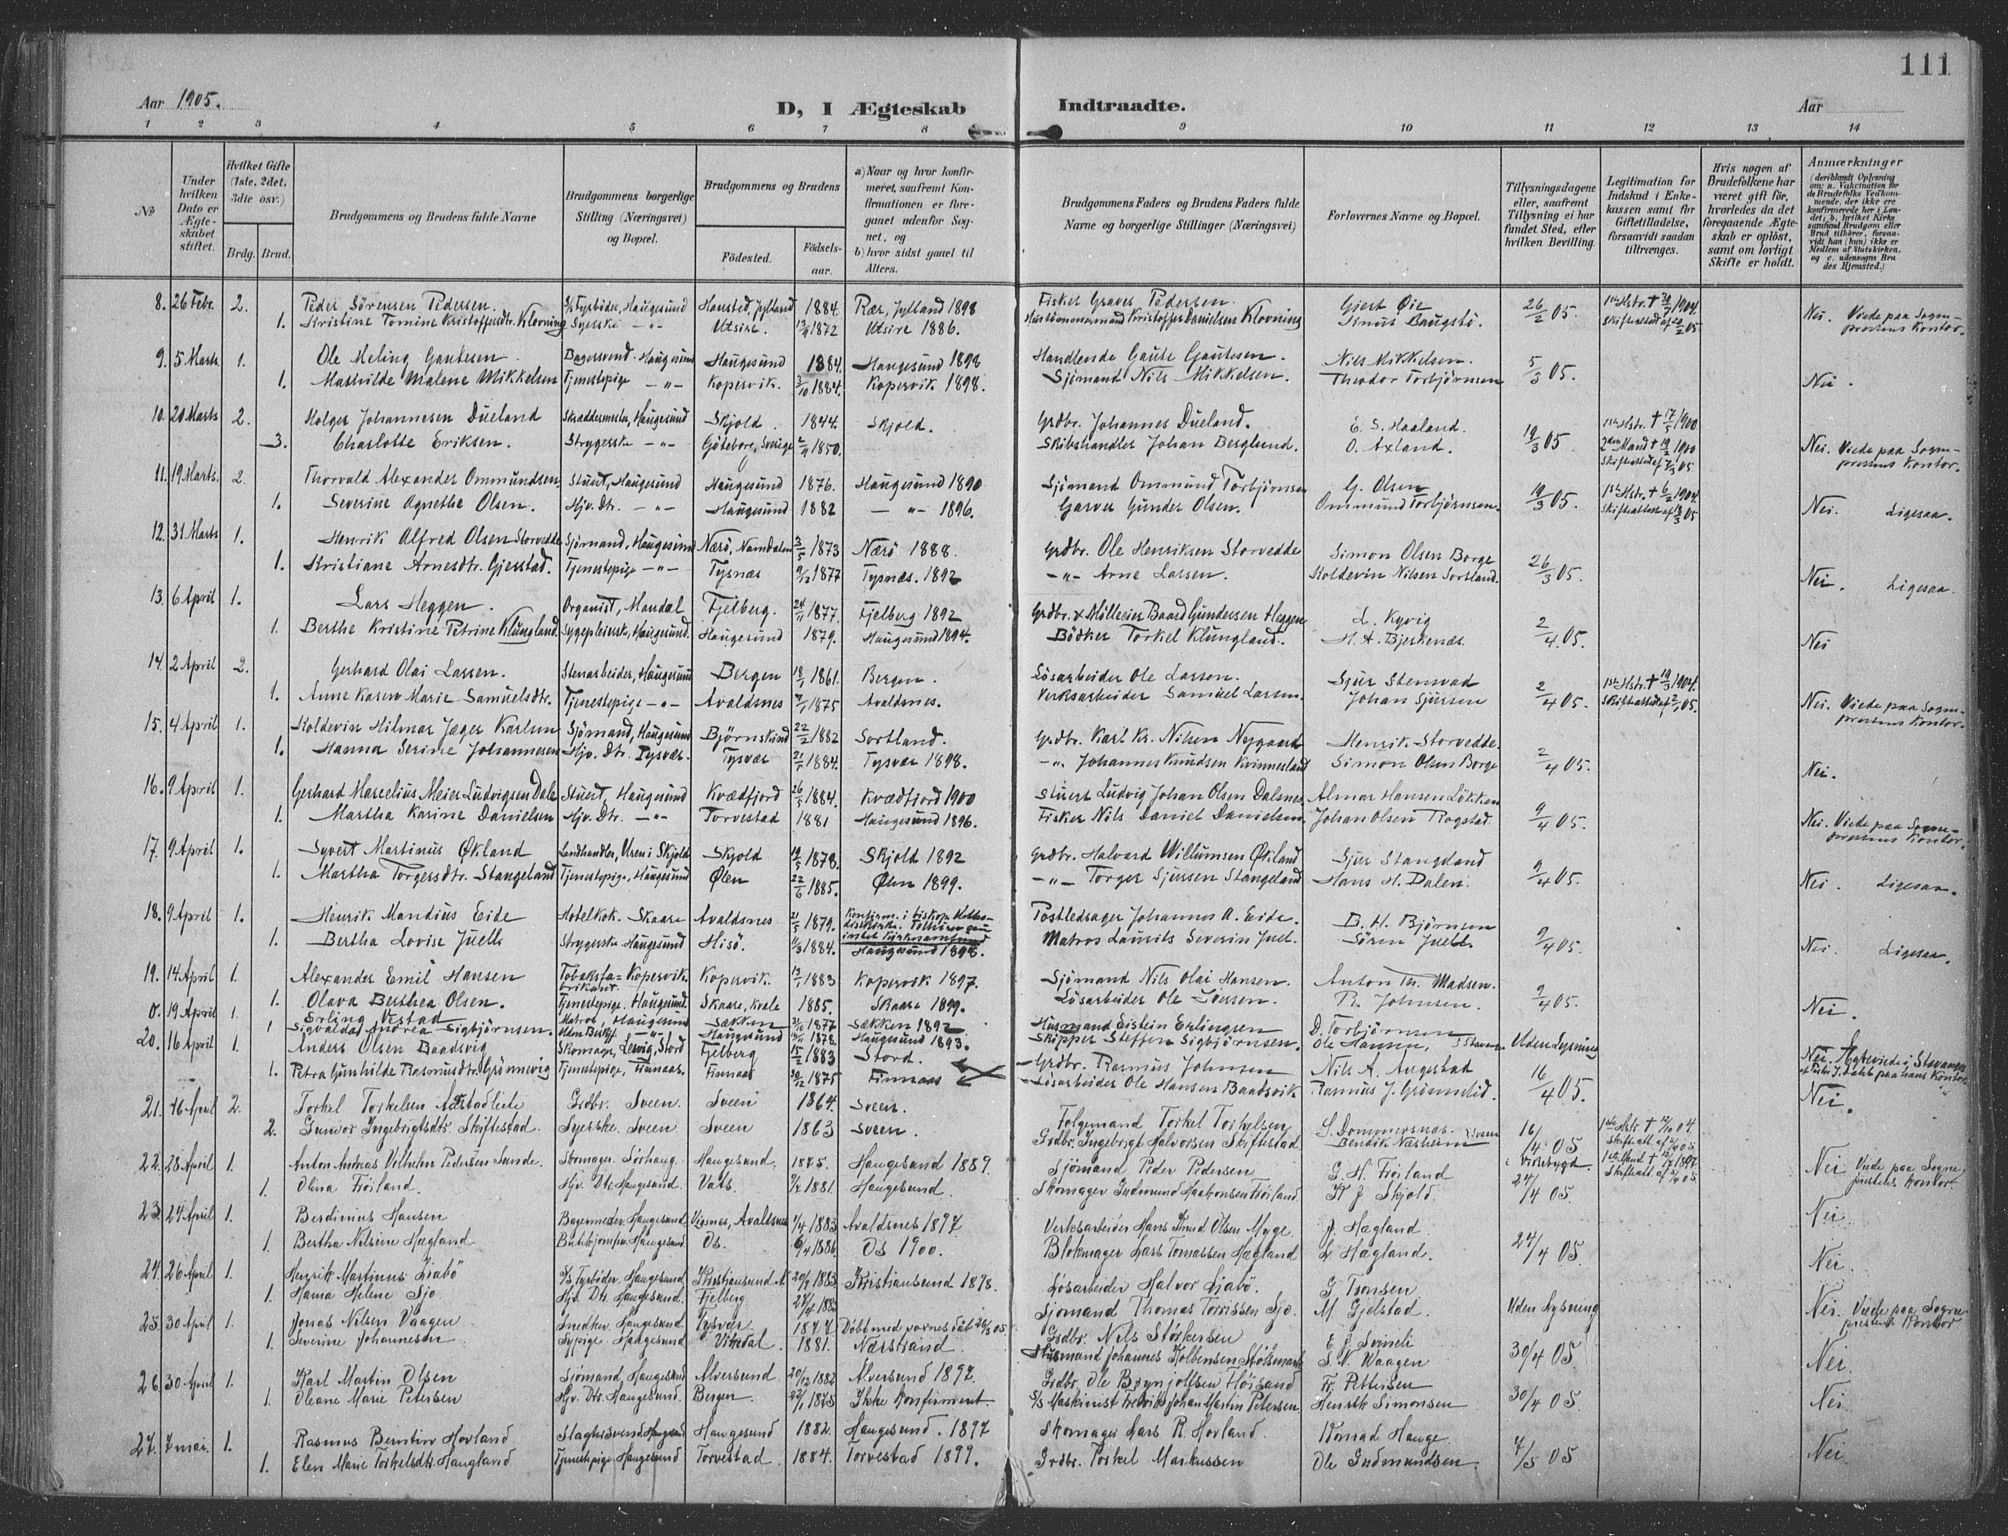 111
Aar 1905.
D, I Ægteskab Indtraadte.
Aar
1 2 3 4 5 6 7 8 9 10 11 12 13 14
No
Under hvilken Dato er Ægteskabet stiftet.
Hvilket Gifte (1ste, 2det, 3die osv.)
Brdg. Brud.
Brudgommens og Brudens fulde Navne
Brudgommens borgerlige Stilling (Næringsvei) og Bopæl.
Brudgommens og Brudens
Fødested. Fødselsaar.
a) Naar og hvor konfirmeret, saafremt Konfirmationen er foregaaet udenfor Sognet, og
b) hvor sidst gaaet til Alters.
Brudgommens Faders og Brudens Faders fulde Navne og borgerlige Stillinger (Næringsvei)
Forlovernes Navne og Bopæl.
Tillysningsdagene eller, saafremt Tillysning ei har fundet Sted, efter hvilken Bevilling.
Legitimation for Indskud i Enkekassen samt for Giftetilladelse, forsaavidt saadan tiltrænges.
Hvis nogen af Brudefolkene har været gift før, hvorledes da det foregaaende Ægteskab er opløst, samt om lovligt Skifte er holdt.
Anmærkninger
(deriblandt Oplysning om: a. Vaccination for de Brudefolks Vedkommende, der ikke ere konfirmerede her i Landet; b. hvilket Kirkesamfund Brudgom eller Brud tilhører, forsaavidt han (hun) ikke er Medlem af Statskirken, og c. udensogns Brudes Hjemsted.)
8. 26 Febr. 2. Peder Sørensen Pedersen. Fyrbøder, Haugesund Hansted, Jylland 1884. Rær, Jylland 1898 Fisker Graves Pedersen. Gjert Øie 26/2 05.
1. Kristine Tomine Kristoffersdtr. Klovning Syerske -"- Utsire. 1872 Utsire 1886. Kristoffer Danielsen Klovning Baugstø. Nei. Viede paa Sogneprestens Kontor.
9. 5 Marts 1. Ole Meling Gautesen. Bagersvend. Haugesund Haugesund 1884. Haugesund 1898 Handlende Gaute Gautesen. Nils Mikkelsen. 5/3 05.
1. Mathilde Malene Mikkelsen Tjenestepige -"- Kopervik. 1884. Kopervik 1898. Sjömand Nils Mikkelsen. Theodor Torbjörnsen Nei.
10. 20 Marts 2. Holger Johannesen Dueland Skræddermester, Haugesund Skjold 1844. Skjold. Grdbr. Johannes Dueland. E. S. Haaland. 19/3 05.
3. Charlotte Eriksen. Strygerske -"- Göteborg, Sverige 1850. Skibshandler Johan Berglund. O. Axland. Nei. Viede paa Sogneprestens Kontor.
11. 19 Marts. 2. Thorvald Alexander Ommundsen Stuert, Haugesund Haugesund 1876. Haugesund 1890 Sjömand Ommund Torbjörnsen G. Olsen 19/3 05.
1. Severine Agnethe Olsen. Hjv. Dtr. -"- Haugesund 1882 -"- 1896. Garver Gunder Olsen. Ommund Torbjörnsen. Nei. Ligesaa.
12. 31 Marts 1. Henrik Alfred Olsen Storvedde Sjömand, Haugesund Nærö, Namdalen 1873 Nærö 1888. Grdbr. Ole Henriksen Storvedde Simon Olsen Borge 26/3 05.
1. Kristiane Arnesdtr. Gjerstad. Tjenestepige -"- Tysnæs 1877 Tysnæs. 1892 -"- Arne Larsen. Koldevin Nilsen Sortland. Nei. Ligesaa.
13. 6 April 1. Lars Heggen. Organist, Mandal Fjelberg. 1877. Fjelberg 1892 Grdbr. & Mölleeier Baard Gundersen Heggen L. Kyvig 2/4 05.
1. Berthe Kristine Petrine Klungland. Sygepleierske, Haugesund. Haugesund 1879. Haugesund 1894. Bödker Torkel Klungland. H. A. Bjerkenæs. Nei
14. 2 April 2. Gerhard Olai Larsen. Stenarbeider, Haugesund Bergen 1861. Bergen. Løsarbeider Ole Larsen. Sjur Stensvad 2/4 05.
1. Anne Karen Marie Samuelsdtr. Tjenestepige -"- Avaldsnes 1875 Avaldsnes. Verksarbeider Samuel Larsen. Johan Sjursen Nei. Viede paa Sogneprestens Kontor.
15. 4 April 1. Koldevin Hilmar Jæger Karlsen Sjömand, Haugesund Björnskind 1882 Sortland. Grdbr. Karl Kr. Nilsen Nygaard Henrik Storvedde. 2/4 05.
1. Hanna Serine Johannesen Hjv. Dtr. Tysvær. Tysvær 1884. Tysvær 1898. -"- Johannes Knudsen Kvinnesland Simon Olsen Borge Nei.
16. 9 April 1. Gerhard Marcelius Meier Ludvigsen Dale Stuert, Haugesund Kvædfjord 1884. Kvædfjord 1900 Stuert Ludvig Johan Olsen Dalsnes. Almar Hansen Løkken 9/4 05.
1. Martha Karine Danielsen Hjv. Dtr. -"- Torvestad 1881 Haugesund 1896. Fisker Nils Daniel Danielsen. Johan Olsen Rogstad. Nei. Viede paa Sogneprestens Kontor.
17. 9 April 1. Syvert Martinus Økland Landhandler, Ureni Skjold Skjold 1878. Skjold 1892 Grdbr. Halvard Willumsen Økland Sjur Stangeland 9/4 05.
1. Martha Torgersdtr. Stangeland Tjenestepige, Haugesund Ølen 22/6 1885. Ølen 1899. -"- Torger Sjursen Stangeland Hans H. Dalen. Nei. Ligesaa.
18. 9 April 1. Henrik Mandius Eide Hotelkok. Skaare Avaldsnes 1879. Konfirm. i biskop. Haugesund 1898. Postledsager Johannes A. Eide. D. H. Bjørnsen 9/4 05.
1. Bertha Lovise Juell Strygerske Haugesund Hisö. 1884. Matros Laurits Severin Juel. Sören Juell. Nei Ligesaa.
19. 14 April 1. Alexander Emil Hansen Tobaksfabrikant. Kopervik Kopervik. 1883 Kopervik 1897. Sjömand Nils Olai Hansen. Anton Th. Madsen. 9/4 05.
1. Olava Berthea Olsen. Tjenestepige. Haugesund. Skaare, Kvale 1885. Skaare 1899. Løsarbeider Ole Iversen. R. Johnsen. Nei.
0. 19 April 1. Erling Vestad Matros, Haugesund Søkken 1877 Søkken 1892 Husmand Eistein Erlingsen D. Torbjörnsen Uden Lysning
1 Sigvalda Andrea Sigbjörnsen. Haugesund 1878. Haugesund 1893. Skipper Steffen Sigbjörnsen. Ole Hansen, Stavanger
20. 16 April 1. Anders Olsen Baadsvig Skomager, Lervig, Stord Fjelberg 1883 Stord. Grdbr. Rasmus Johnsen Nils A. Augestad 16/4 05.
1. Petra Gunhilde Rasmusdtr. Grønnevig Tjenestepige, Finnaas. Finnaas 1875 Finnaas Løsarbeider Ole Hansen Baadsvik Rasmus J. Grönnevig. Nei.
21. 16 April 2. Torkel Torkelsen Grdbr. Sveen Sveen 1864. Sveen. Folgemand Torkel Torkelsen. S. Dommersnes. 16/4 05
2. Gunvor Ingebrigtsdtr. Skiftestad. Syerske. Sveen Sveen 1863 Sveen. Grdbr. Ingebrigt Halvorsen Skiftestad. Bendik Næsheim
22. 28 April 1. Anton Andreas Vilhelm Pedersen Sunde. Skomager. Sörhaug. Haugesund. 1875. Haugesund 1889. Sjömand Peder Pedersen. G. H. Fröiland. 24/4 05. Nei Viede paa Sogneprestens Kontor
1. Olina Fröiland. Hjv. Dtr. Haugesund. Vats. 1881. Haugesund. Skomager Gudmund Haakonsen Fröiland. J. Skjold.
23. 24 April 1. Berdinius Hansen Bagermester Haugesund Vigsnes, Avaldsnes 1/4 1883 Avaldsnes 1897. Verksarbeider Hans Knud Olsen Myge J. Hægland. 24/4 05. Nei
1. Bertha Nilsine Hægland Butikjomfru, Haugesund. Os. 6/4 1886 Os 1900. Blokmager Lars Tomassen Hægland L. Hægland.
24. 26 April 1. Henrik Martinus Liabø Fyrbøder. Haugesund Kristiansund N. 1883. Kristiansund 1898. Løsarbeider Halvor Liabø. G. Tonsen Uden Lysning Nei.
1. Hanna Helene Sjo. Hjv. Dtr. Haugesund. Fjelberg Sjömand Thomas Torrissen Sjo. M. Gjelstad. Nei. Viede paa Sogneprestens Kontor
25. 30 April 1. Jonas Nilsen Vaagen Snedker. Haugesund. Tysvær 1877 Døbt med voxnes dåb Grdbr. Nils Størkersen E. J. Svineli 30/4 05 Nei
1 Severine Johannesdtr. Sypige Haugesund Vikedal 1881. Nærstrand Husmand Johannes Kolbensen S. N. Vaagen
26. 30 April 1. Karl Martin Olsen Sjömand, Haugesund Alversund 1882 Alversund 1897. Grdbr. Ole Brynjolfsen Høisand Fr. Pettersen 30/4 05. Nei
1 Oleane Marie Petersen Hjv. Dtr. Haugesund. Bergen 1875 Ikke Konfirmeret S/s Maskinist Fredrik Johan Martin Petersen Henrik Simonsen
27. 7 mai. 1. Rasmus Berntin Hovland Slagtersvend Haugesund Haugesund 1882. Haugesund. 1897 Skomager Lars R. Hovland. Konrad Hauge 7/5 05
1. Elen Marie Torkelsdtr. Haugland Tjenestepige Haugesund Torvestad. 1884. Torvestad 1899. Grdbr. Torkel Markussen Ole Gudmundsen. Nei